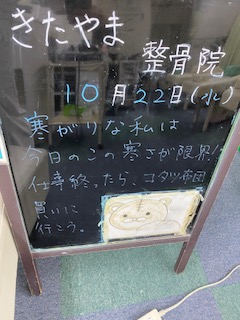 きたやま
整骨院
10月22日(水)
寒がりな私は
今日のこの寒さが限界!
仕事終ったら、コタツ布団
買いに
行こう。